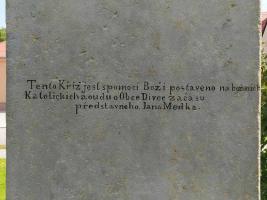 Tento Kříž jest spomocí Boží postaveno na
Katolickich oudu o Obce Divec za času
představneho Jana Medka.